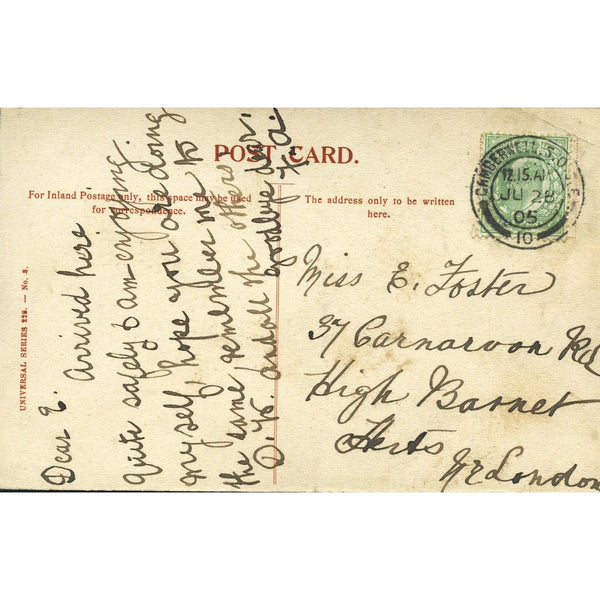 POST CARD.
For Inland Postage only, this space may be used
for correspondence.
The address only to be written
here.
UNIVERSAL SERIES 228. — No. 3.
CAMBERWELL S.O.
12.15 AM
JU 28
05
10
Dear E. Arrived here
quite safely & am enjoying
myself, hope you are doing
the same remember me to
and all the others
goodbye dear.
Miss E. Foster
37 Carnarvon Rd
High Barnet
Herts
Nr London